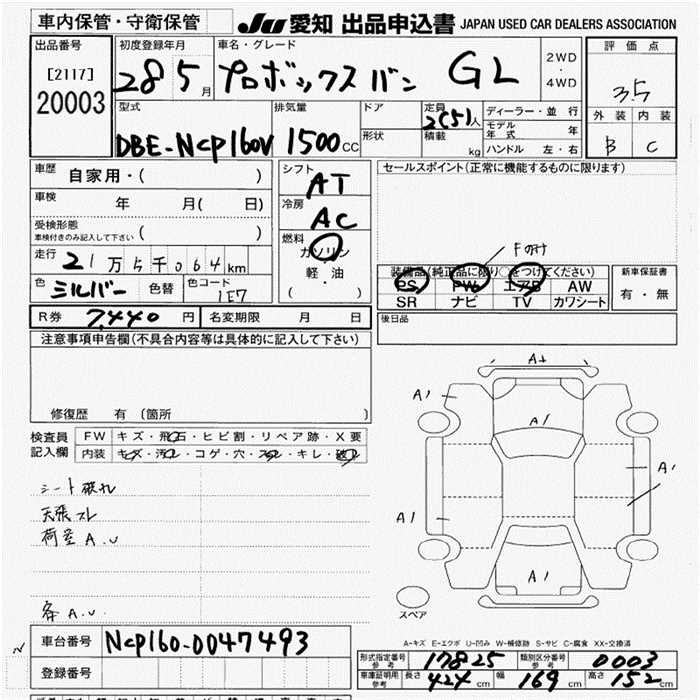 車内保管・守衛保管
JU 愛知 出品申込書 JAPAN USED CAR DEALERS ASSOCIATION
出品番号
[2117]
20003
初度登録年月
28 5月
車名・グレード
プロボックスバン GL
2WD
・
4WD
評価点
3.5
外装 内装
B C
型式
DBE-NCP160V
排気量
1500cc
ドア
形状
定員
2(5)人
積載 kg
ディーラー・並行
モデル年式 年
ハンドル 左・右
車歴 自家用・( )
車検 年 月( 日)
受検形態
車検付きのみ記入して下さい ( )
走行 21万5千064km
色 シルバー 色替 色コード 1E7
シフト
AT
冷房
AC
燃料
ガソリン
・
軽・油
( )
セールスポイント(正常に機能するものに限ります)
Fのみ
装備品(純正品に限り○をつけてください)
PS PW エアB AW
SR ナビ TV カワシート
新車保証書
有・無
R券 7,440円 名変期限 月 日
後日品
注意事項申告欄(不具合内容等は具体的に記入して下さい)
修復歴 有(箇所 )
検査員記入欄
FW キズ・飛石・ヒビ割・リペア跡・X要
内装 キズ・汚れ・コゲ・穴・スレ・キレ・破れ
シート破れ
天張スレ
荷室A.U
各A.U.
A1
A1
A1
A1
A1
A1
スペア
A-キズ E-エクボ U-凹み W-補修跡 S-サビ C-腐食 XX-交換済
車台番号 NCP160-0047493
登録番号
形式指定番号 参考 17825
類別区分番号 参考 0003
車庫証明用 参考 長さ 424cm 幅 169cm 高さ 152cm